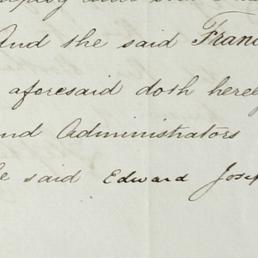 And the said Fran
aforesaid doth here
and Administrators
said Edward Josep